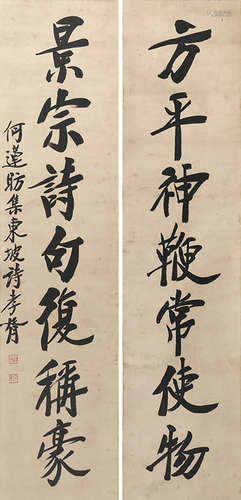 方平神鞭常使物
景宗詩句復稱豪
何蓮舫集東坡詩孝胥